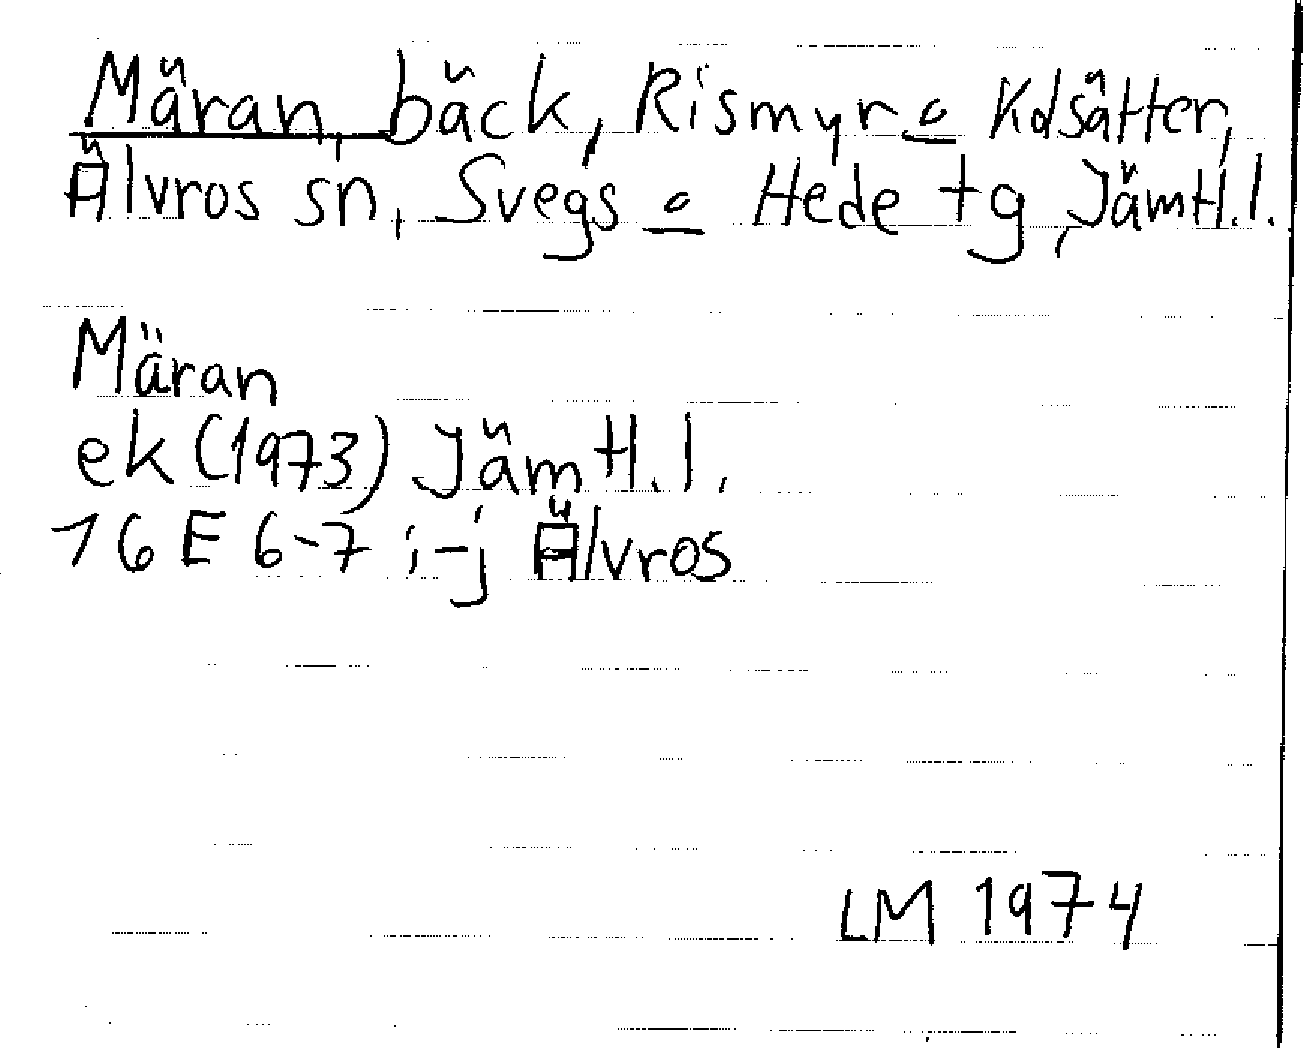 Märan, bäck, Rismyr o Kolsätter,
Älvros sn, Svegs o Hede tg, Jämtl.l.
Märan
ek (1973) Jämtl.l.
16 E 6-7 i-j Älvros
LM 1974